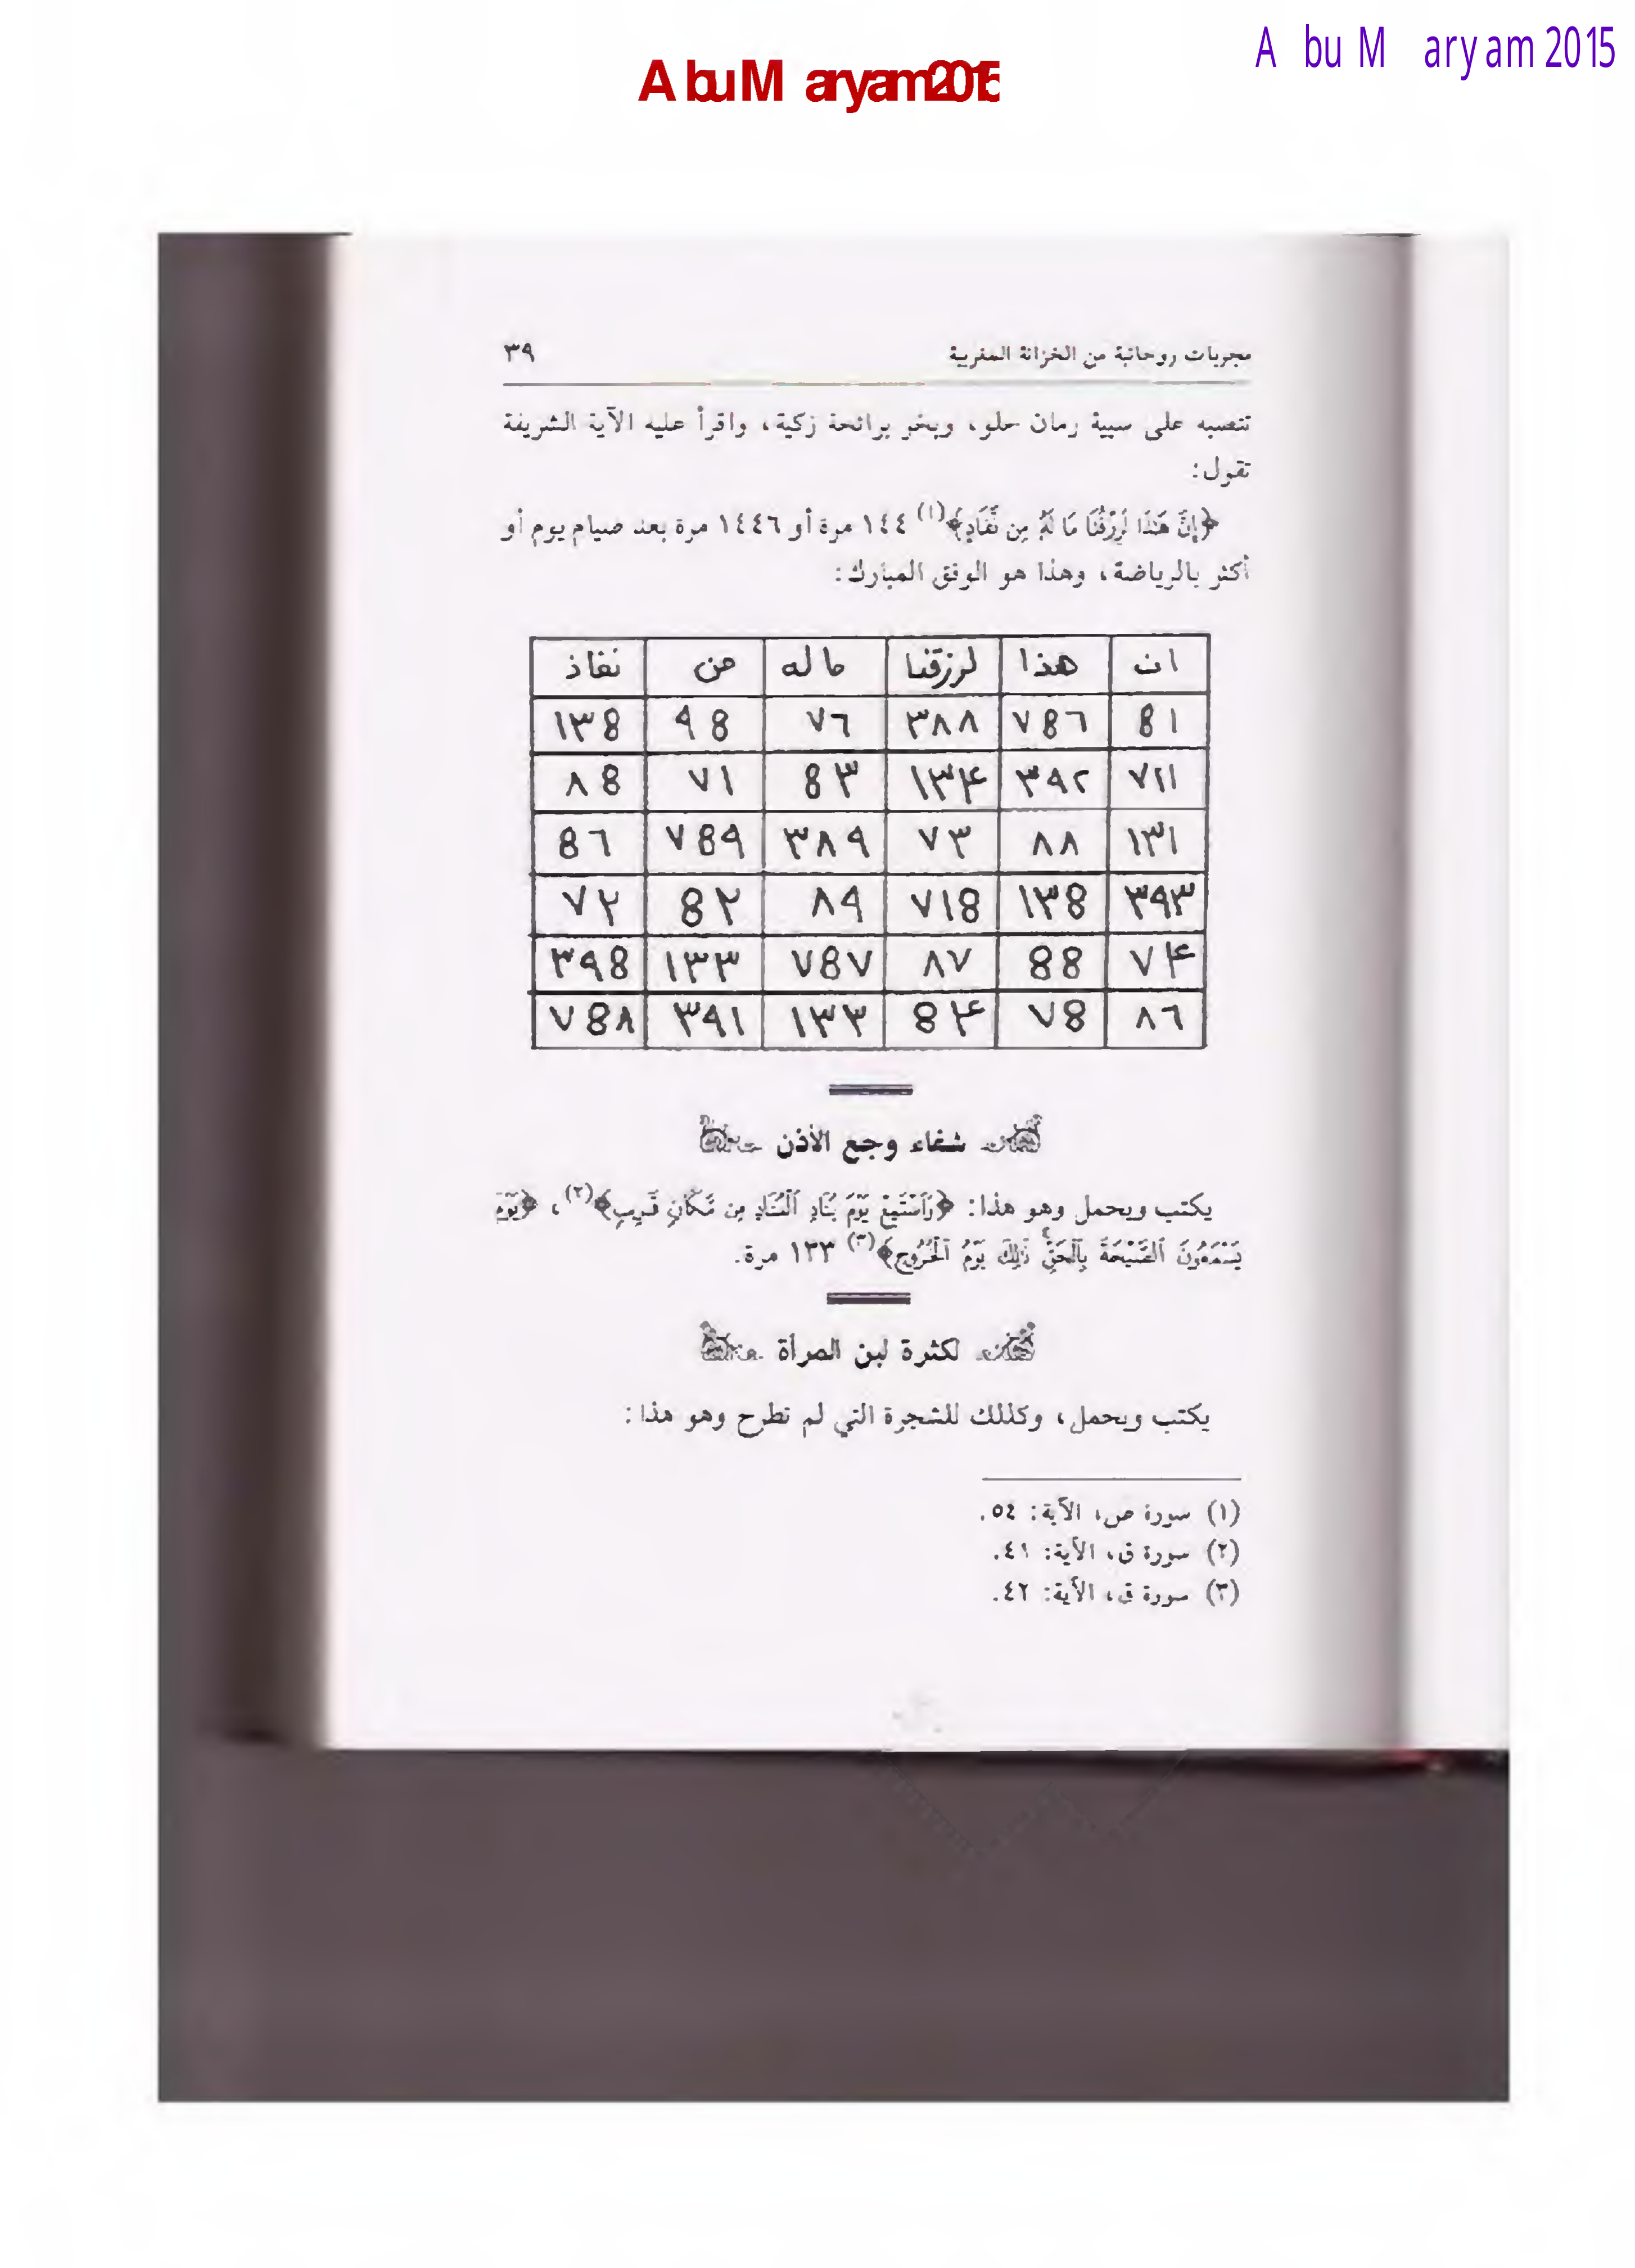 Abu Maryam 2015
Abu Maryam 2015
مجربات روحانية من الخزانة المغربية ٣٩
تنصبه على سيبة رمان حلو، وبخر برائحة زكية، واقرأ عليه الآية الشريفة
تقول:
﴿إِنَّ هَٰذَا لَرِزْقُنَا مَا لَهُ مِن نَّفَادٍ﴾(١) ١٤٤ مرة أو ١٤٤٦ مرة بعد صيام يوم أو
أكثر بالرياضة، وهذا هو الوفق المبارك:
ان هذا لرزقنا ماله من نفاذ
8١ ٧8٦ ٣٨٨ ٧٦ ٩8 ١٣8
٧١١ ٣٩٢ ١٣۴ 8٣ ٧١ ٨8
١٣١ ٨٨ ٧٣ ٣٨٩ ٧8٩ 8٦
٣٩٣ ١٣8 ٧١8 ٨٩ 8٢ ٧٢
٧۴ 88 ٨٧ ٧8٧ ١٣٣ ٣٩8
٨٦ ٧8 8۴ ١٣٣ ٣٩١ ٧8٨
شفاء وجع الأذن
يكتب ويحمل وهو هذا: ﴿وَٱسْتَمِعْ يَوْمَ يُنَادِ ٱلْمُنَادِ مِن مَّكَانٍ قَرِيبٍ﴾(٢)، ﴿يَوْمَ
يَسْمَعُونَ ٱلصَّيْحَةَ بِٱلْحَقِّ ذَٰلِكَ يَوْمُ ٱلْخُرُوجِ﴾(٣) ١٣٣ مرة.
لكثرة لبن المرأة
يكتب ويحمل، وكذلك للشجرة التي لم تطرح وهو هذا:
(١) سورة ص، الآية: ٥٤.
(٢) سورة ق، الآية: ٤١.
(٣) سورة ق، الآية: ٤٢.